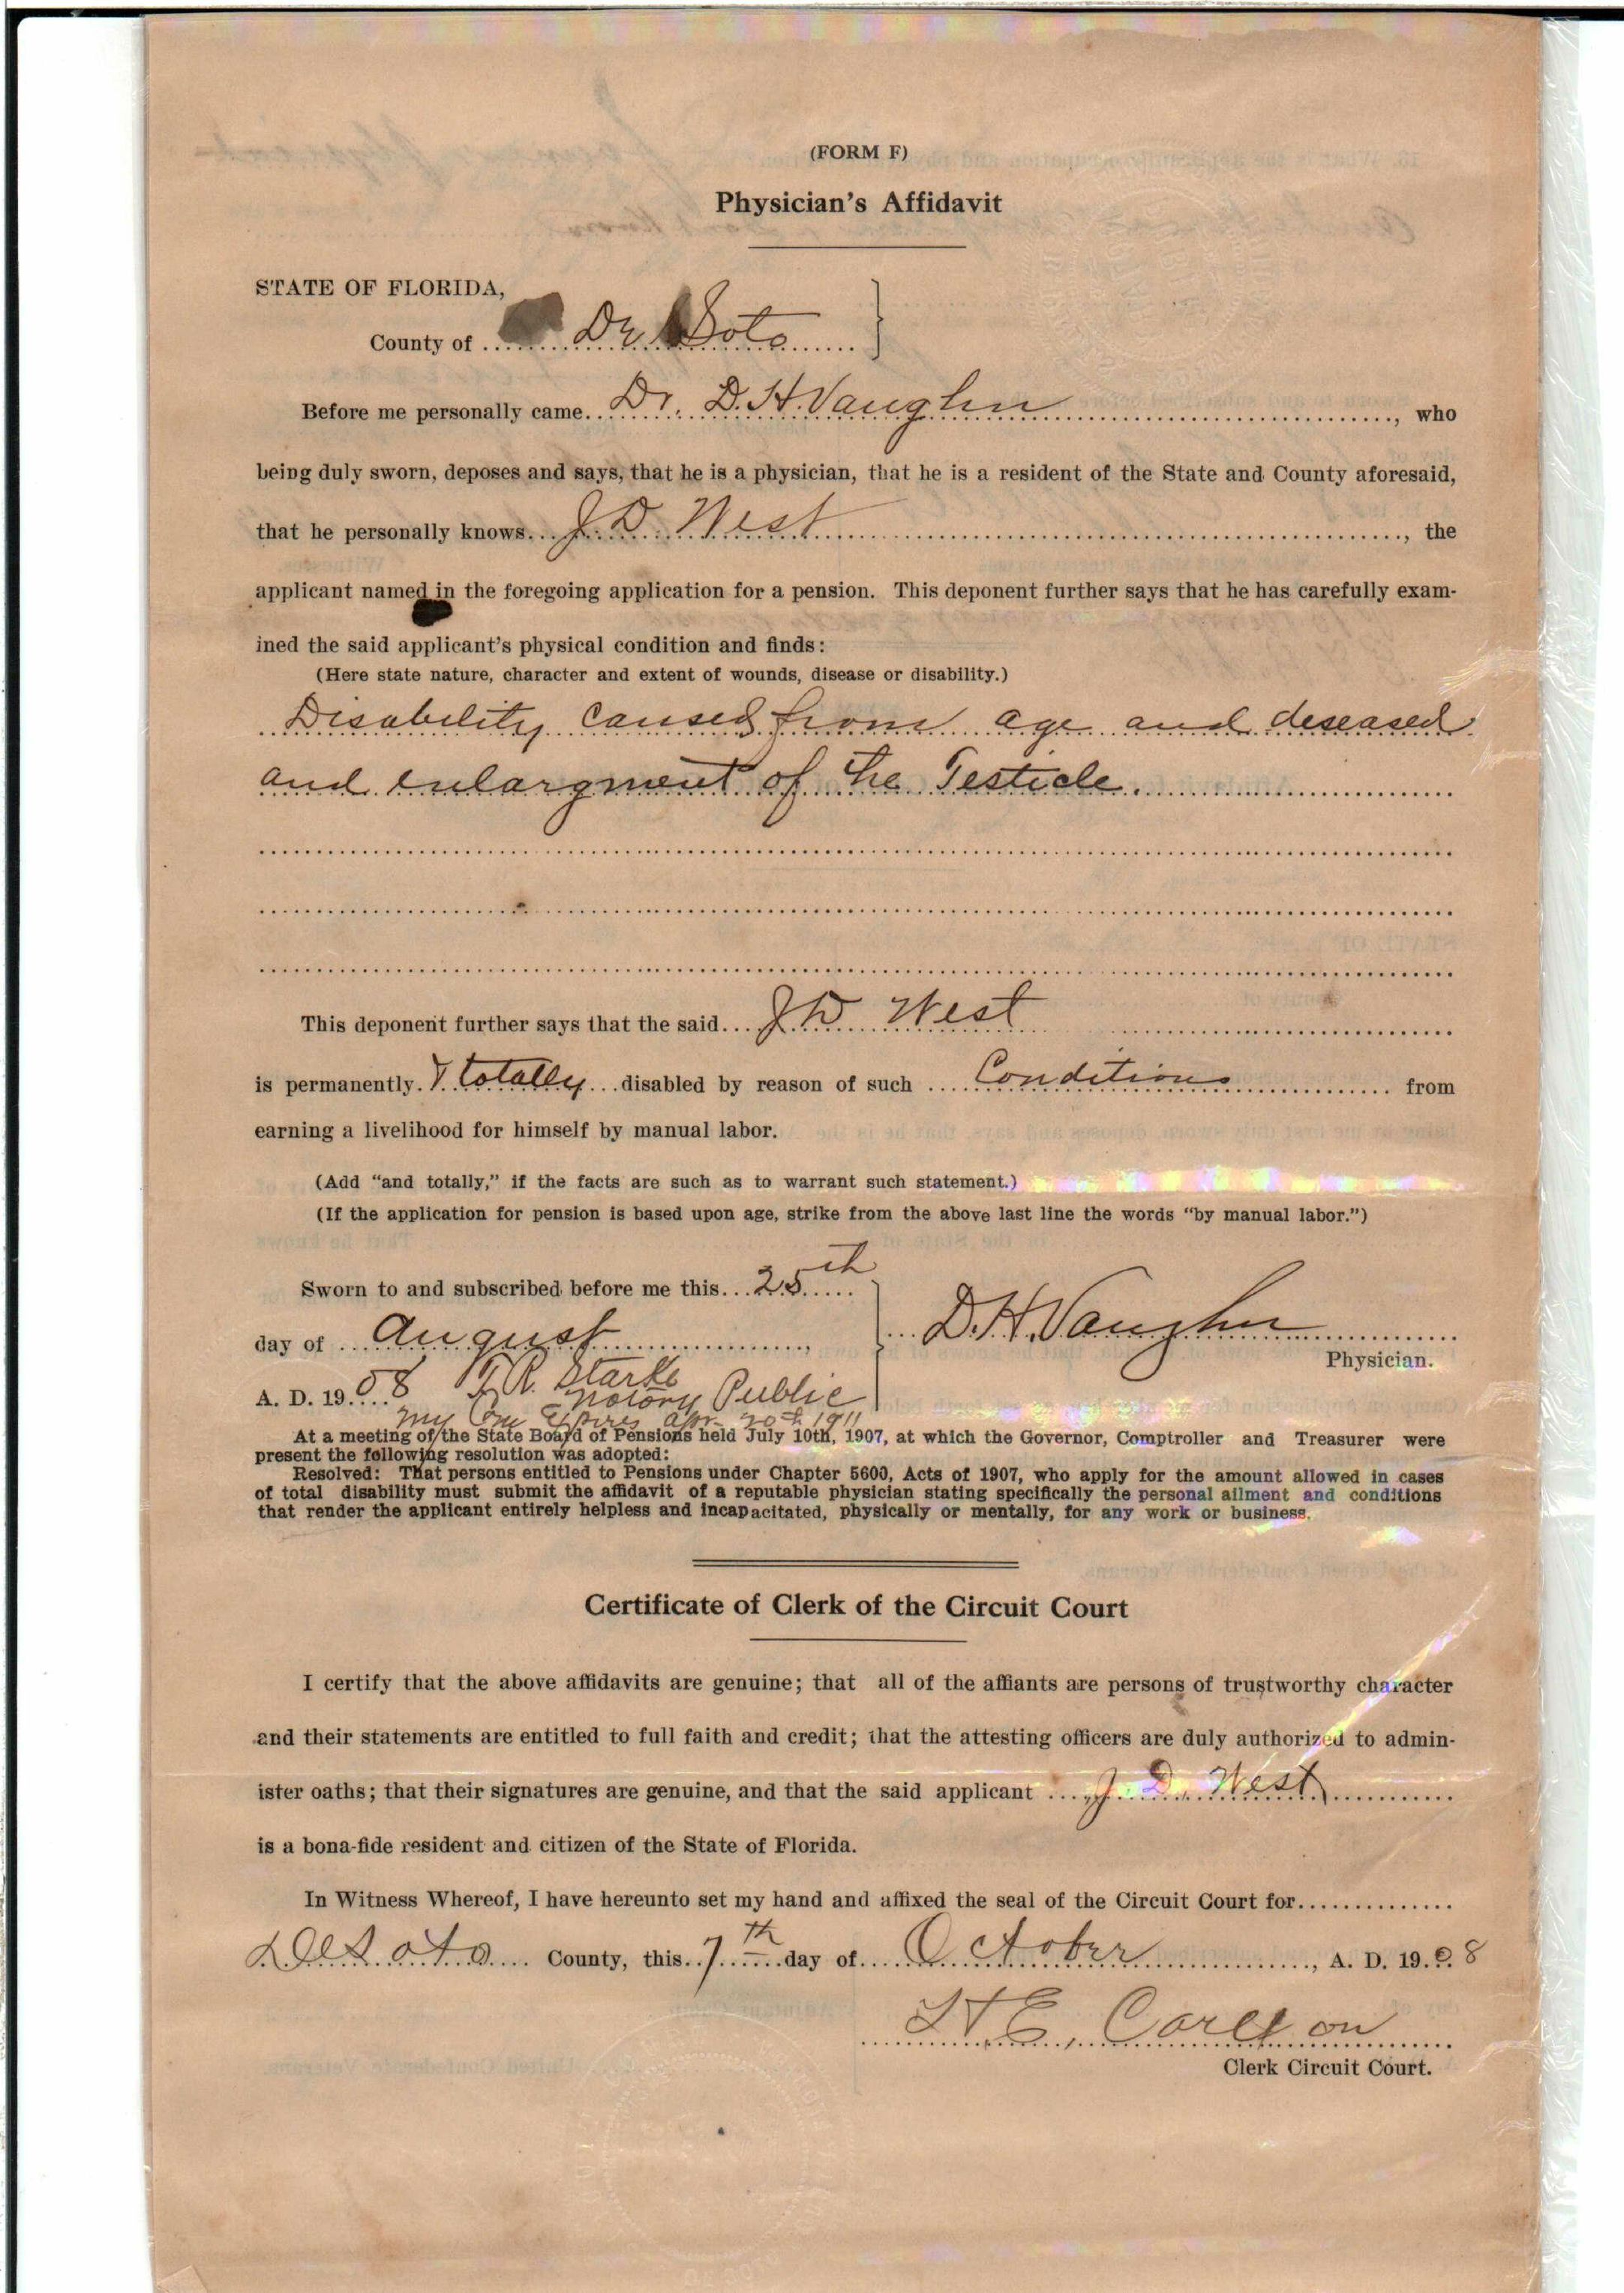 (FORM F)
Physician's Affidavit
STATE OF FLORIDA,
County of De Soto
Before me personally came Dr. D. H. Vaughn, who
being duly sworn, deposes and says, that he is a physician, that he is a resident of the State and County aforesaid,
that he personally knows J. D. West, the
applicant named in the foregoing application for a pension. This deponent further says that he has carefully exam-
ined the said applicant's physical condition and finds:
(Here state nature, character and extent of wounds, disease or disability.)
Disability caused from age and deseased
and enlargment of the Testicle.
This deponent further says that the said J D West
is permanently & totally disabled by reason of such Conditions from
earning a livelihood for himself by manual labor.
(Add "and totally," if the facts are such as to warrant such statement.)
(If the application for pension is based upon age, strike from the above last line the words "by manual labor.")
Sworn to and subscribed before me this 25th
day of August,
D. H. Vaughn
Physician.
A. D. 1908 R. Starke
Notory Public
my Com Expires Apr 20th 1911
At a meeting of the State Board of Pensions held July 10th, 1907, at which the Governor, Comptroller and Treasurer were
present the following resolution was adopted:
Resolved: That persons entitled to Pensions under Chapter 5600, Acts of 1907, who apply for the amount allowed in cases
of total disability must submit the affidavit of a reputable physician stating specifically the personal ailment and conditions
that render the applicant entirely helpless and incapacitated, physically or mentally, for any work or business.
Certificate of Clerk of the Circuit Court
I certify that the above affidavits are genuine; that all of the affiants are persons of trustworthy character
and their statements are entitled to full faith and credit; that the attesting officers are duly authorized to admin-
ister oaths; that their signatures are genuine, and that the said applicant J. D. West
is a bona-fide resident and citizen of the State of Florida.
In Witness Whereof, I have hereunto set my hand and affixed the seal of the Circuit Court for
DeSoto County, this 7th day of October, A. D. 1908
H. E. Carlton
Clerk Circuit Court.